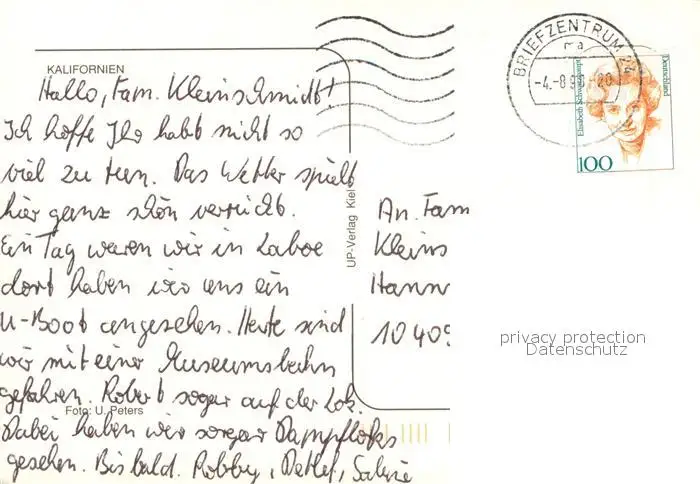 KALIFORNIEN
Hallo, Fam. Kleinschmidt!
Ich hoffe Ihr habt nicht so
viel zu tun. Das Wetter spielt
hier ganz schön verrückt.
Ein Tag waren wir in Laboe
dort haben wir uns ein
U-Boot angesehen. Heute sind
wir mit einer Museumsbahn
gefahren. Robert sogar auf der Lok.
Foto: U. Peters
Dabei haben wir sogar Dampfloks
gesehen. Bis bald. Robby, Detlef, Sabine
UP-Verlag Kiel
An Fam
Kleins
Hann
10409
BRIEFZENTRUM 24
ma
-4.-8.9 -20
Elisabeth Schwarzhaupt
Deutschland
100
privacy protection
Datenschutz